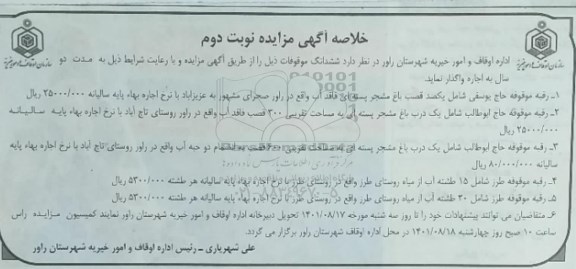 خلاصه آگهی مزایده نوبت دوم
اداره اوقاف و امور خیریه شهرستان راور در نظر دارد ششدانگ موقوفات ذیل را از طریق آگهی مزایده و با رعایت شرایط ذیل به مدت دو
سال به اجاره واگذار نماید.
۱- رقبه موقوفه حاج یوسفی شامل یکصد قصب باغ مشجر پسته ای فاقد آب واقع در راور صحرای مشهور به عزیزاباد با نرخ اجاره بهاء پایه سالیانه ۲۵/۰۰۰/۰۰۰ ریال
۲- رقبه موقوفه حاج ابوطالب شامل یک درب باغ مشجر پسته ای به مساحت تقریبی ۳۰۰ قصب فاقد آب واقع در راور روستای تاج آباد با نرخ اجاره بهاء پایه سالیانه
۲۵/۰۰۰/۰۰۰ ریال
۳- رقبه موقوفه حاج ابوطالب شامل یک درب باغ مشجر پسته ای به مساحت تقریبی قصب به انضمام دو حبه آب واقع در راور روستای تاج آباد با نرخ اجاره بهاء پایه
سالیانه ۸۰/۰۰۰/۰۰۰ ریال
۴- رقبه موقوفه طرز شامل ۱۵ طشته آب از میاه روستای طرز واقع در روستای طرز با نرخ اجاره بهاء پایه سالیانه هر طشته ۵۳۰۰/۰۰۰ ریال
۵- رقبه موقوفه طرز شامل ۲۰ طشته آب از میاه روستای طرز واقع در روستای طرز با نرخ اجاره بهاء پایه سالیانه هر طشته ۵۳۰۰/۰۰۰ ریال
۶- متقاضیان می توانند پیشنهادات خود را تا روز سه شنبه مورخه ۱۴۰۱/۰۸/۱۷ تحویل دبیرخانه اداره اوقاف و امور خیریه شهرستان راور نمایند کمیسیون مزایده راس
ساعت ۱۰ صبح روز چهارشنبه ۱۴۰۱/۰۸/۱۸ در محل اداره اوقاف شهرستان راور برگزار می گردد.
علی شهریاری - رئیس اداره اوقاف و امور خیریه شهرستان راور